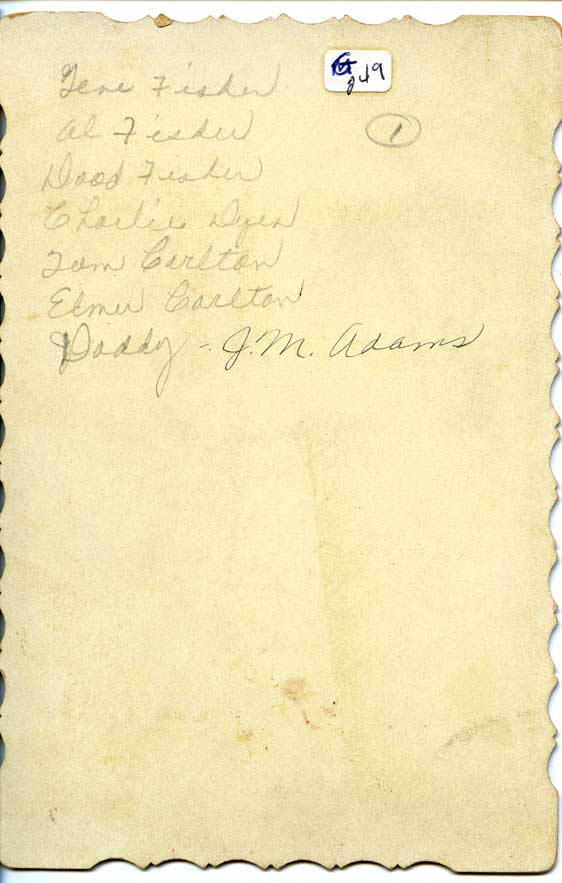 G
249
Gene Fisher
Al Fisher
1
Dood Fisher
Charlie Dyer
Tom Carlton
Elmer Carlton
Daddy - J. M. Adams